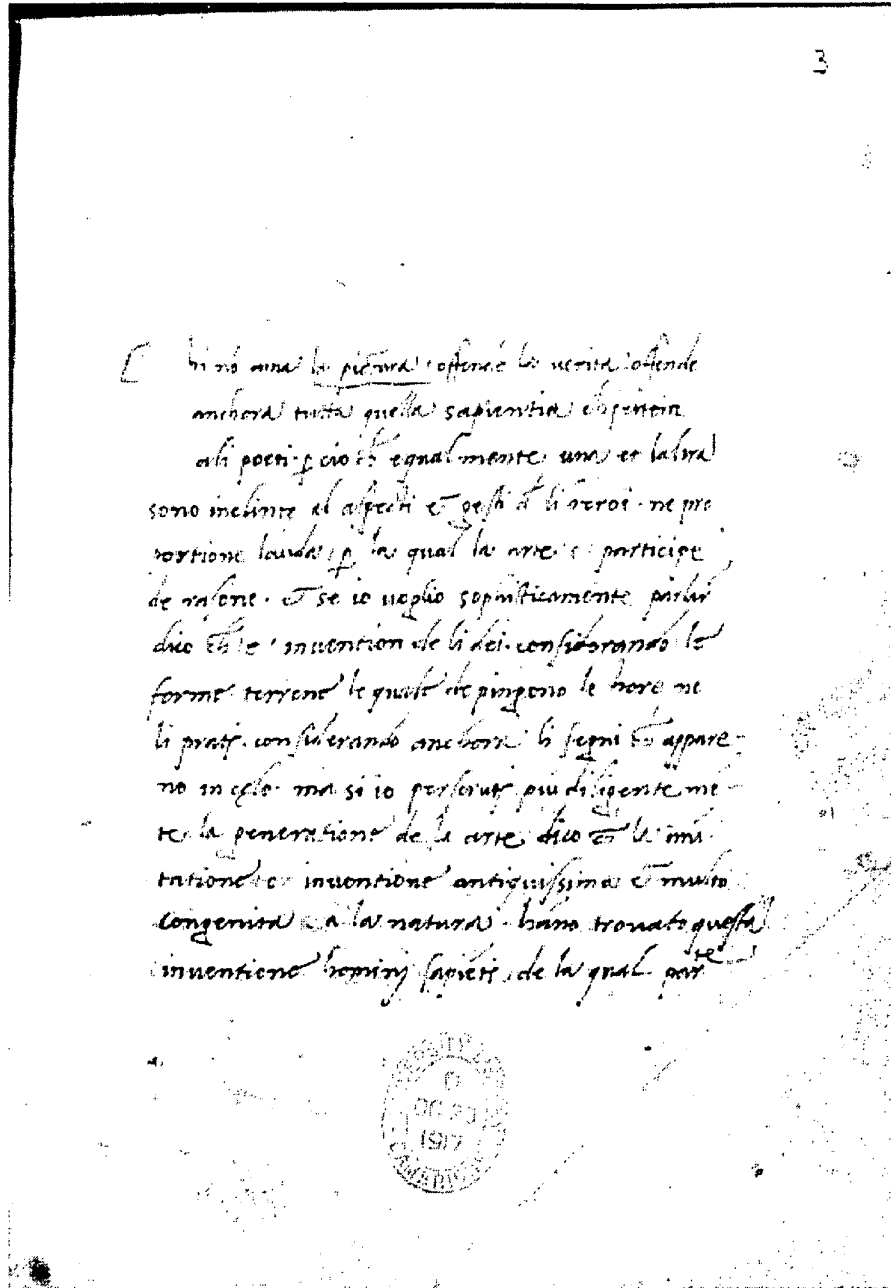 3
hi nõ ama la pictura offende la verita offende
anchora tutta quella sapientia
ali poeti p cio ch equalmente una et laltra
sono inclinte al aspecti et gesti d li heroi ne pro
portione lauda p la qual la arte e participe
de rasone et se io voglio sophisticamente parlar
dico ch e invention de li dei considerando le
forme terrene le quale depingeno le hore ne
li prati considerando anchora li segni ch appare
no in celo ma si io perscruti piu diligente mẽ
te la generatione de la arte dico ch la imi
tatione e inventione antiquissima et multo
congenita a la natura hano trovato questa
inventione homini sapiẽti de la qual parte
1917